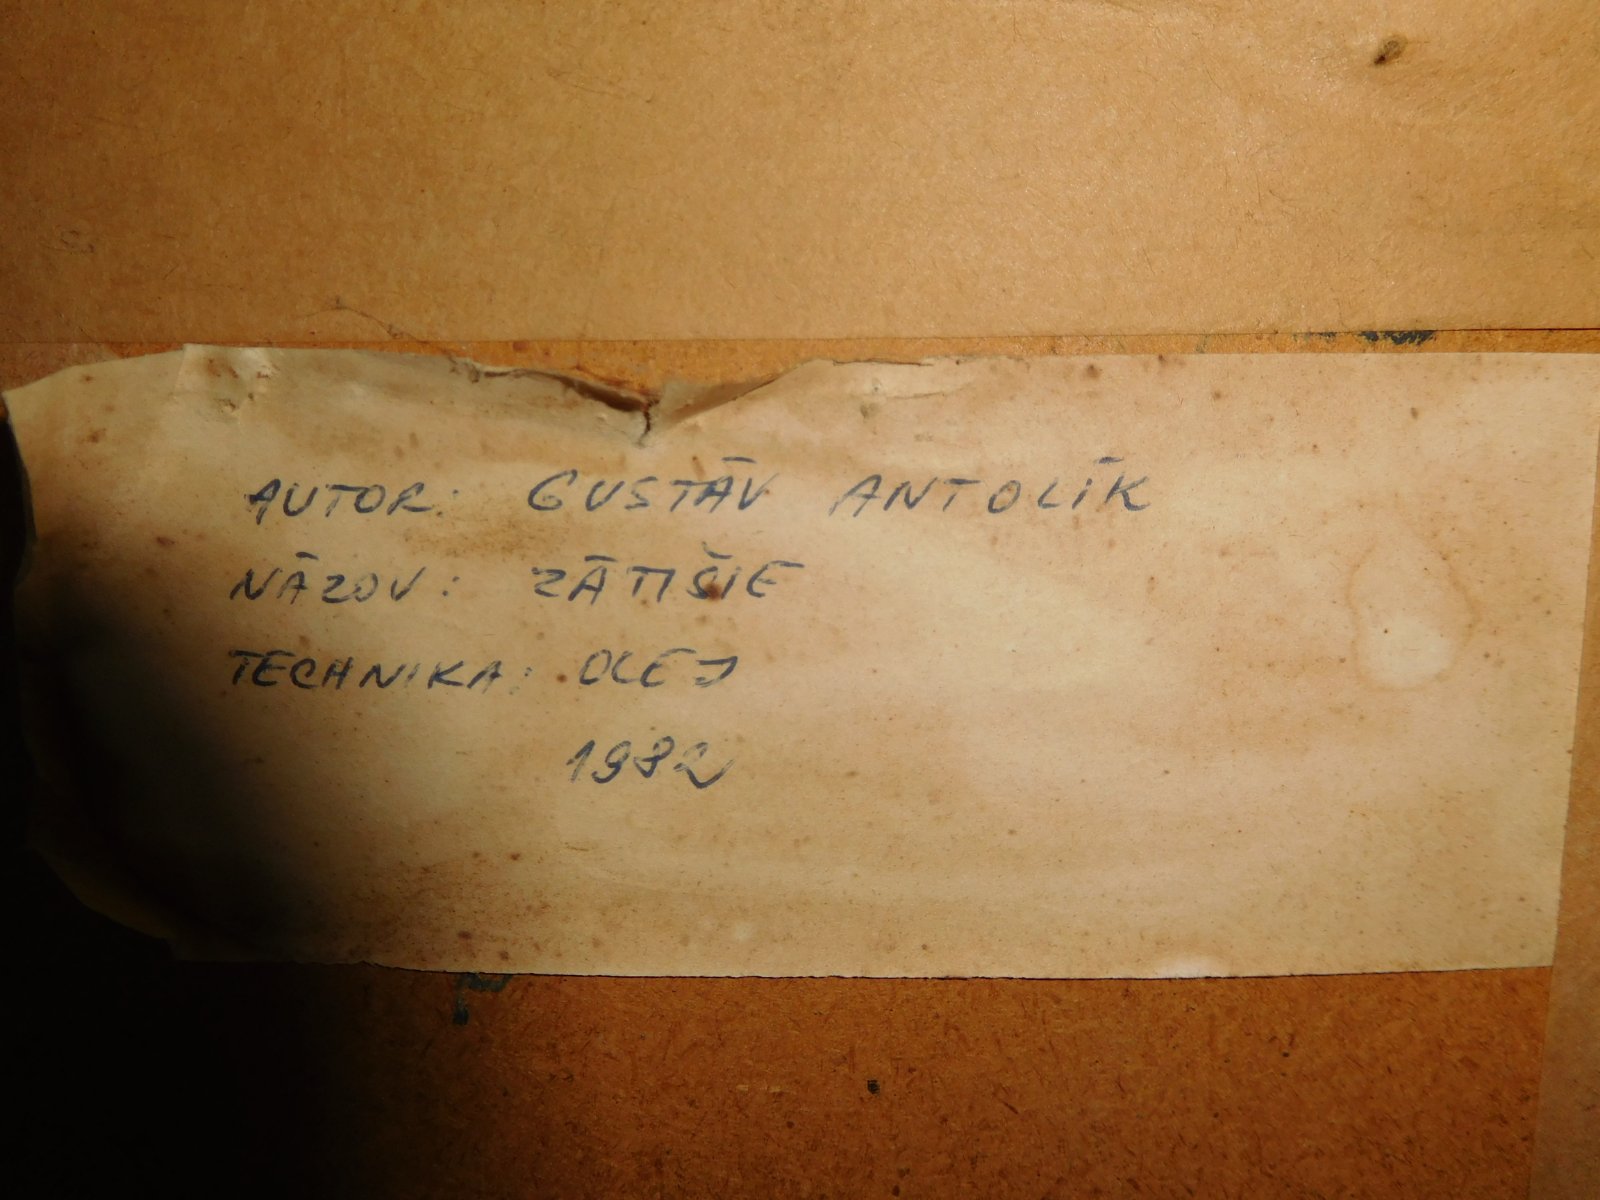 AUTOR: GUSTÁV ANTOLÍK
NÁZOV: ZÁTIŠIE
TECHNIKA: OLEJ
1982